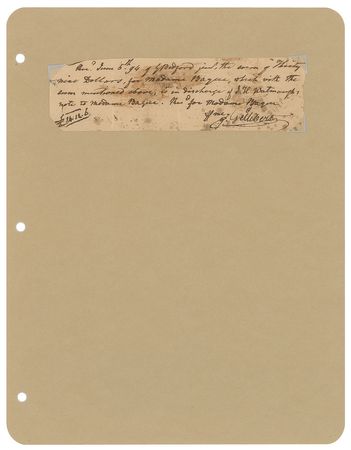 Rec.d June 5th 94 of G Bedford jun.r the sum of Thirty
nine Dollars, for Madame Bague, which with the
sum mentioned above, is in discharge of
note to Madame Bague. Rec.d for Madame Bague
£14.12.6